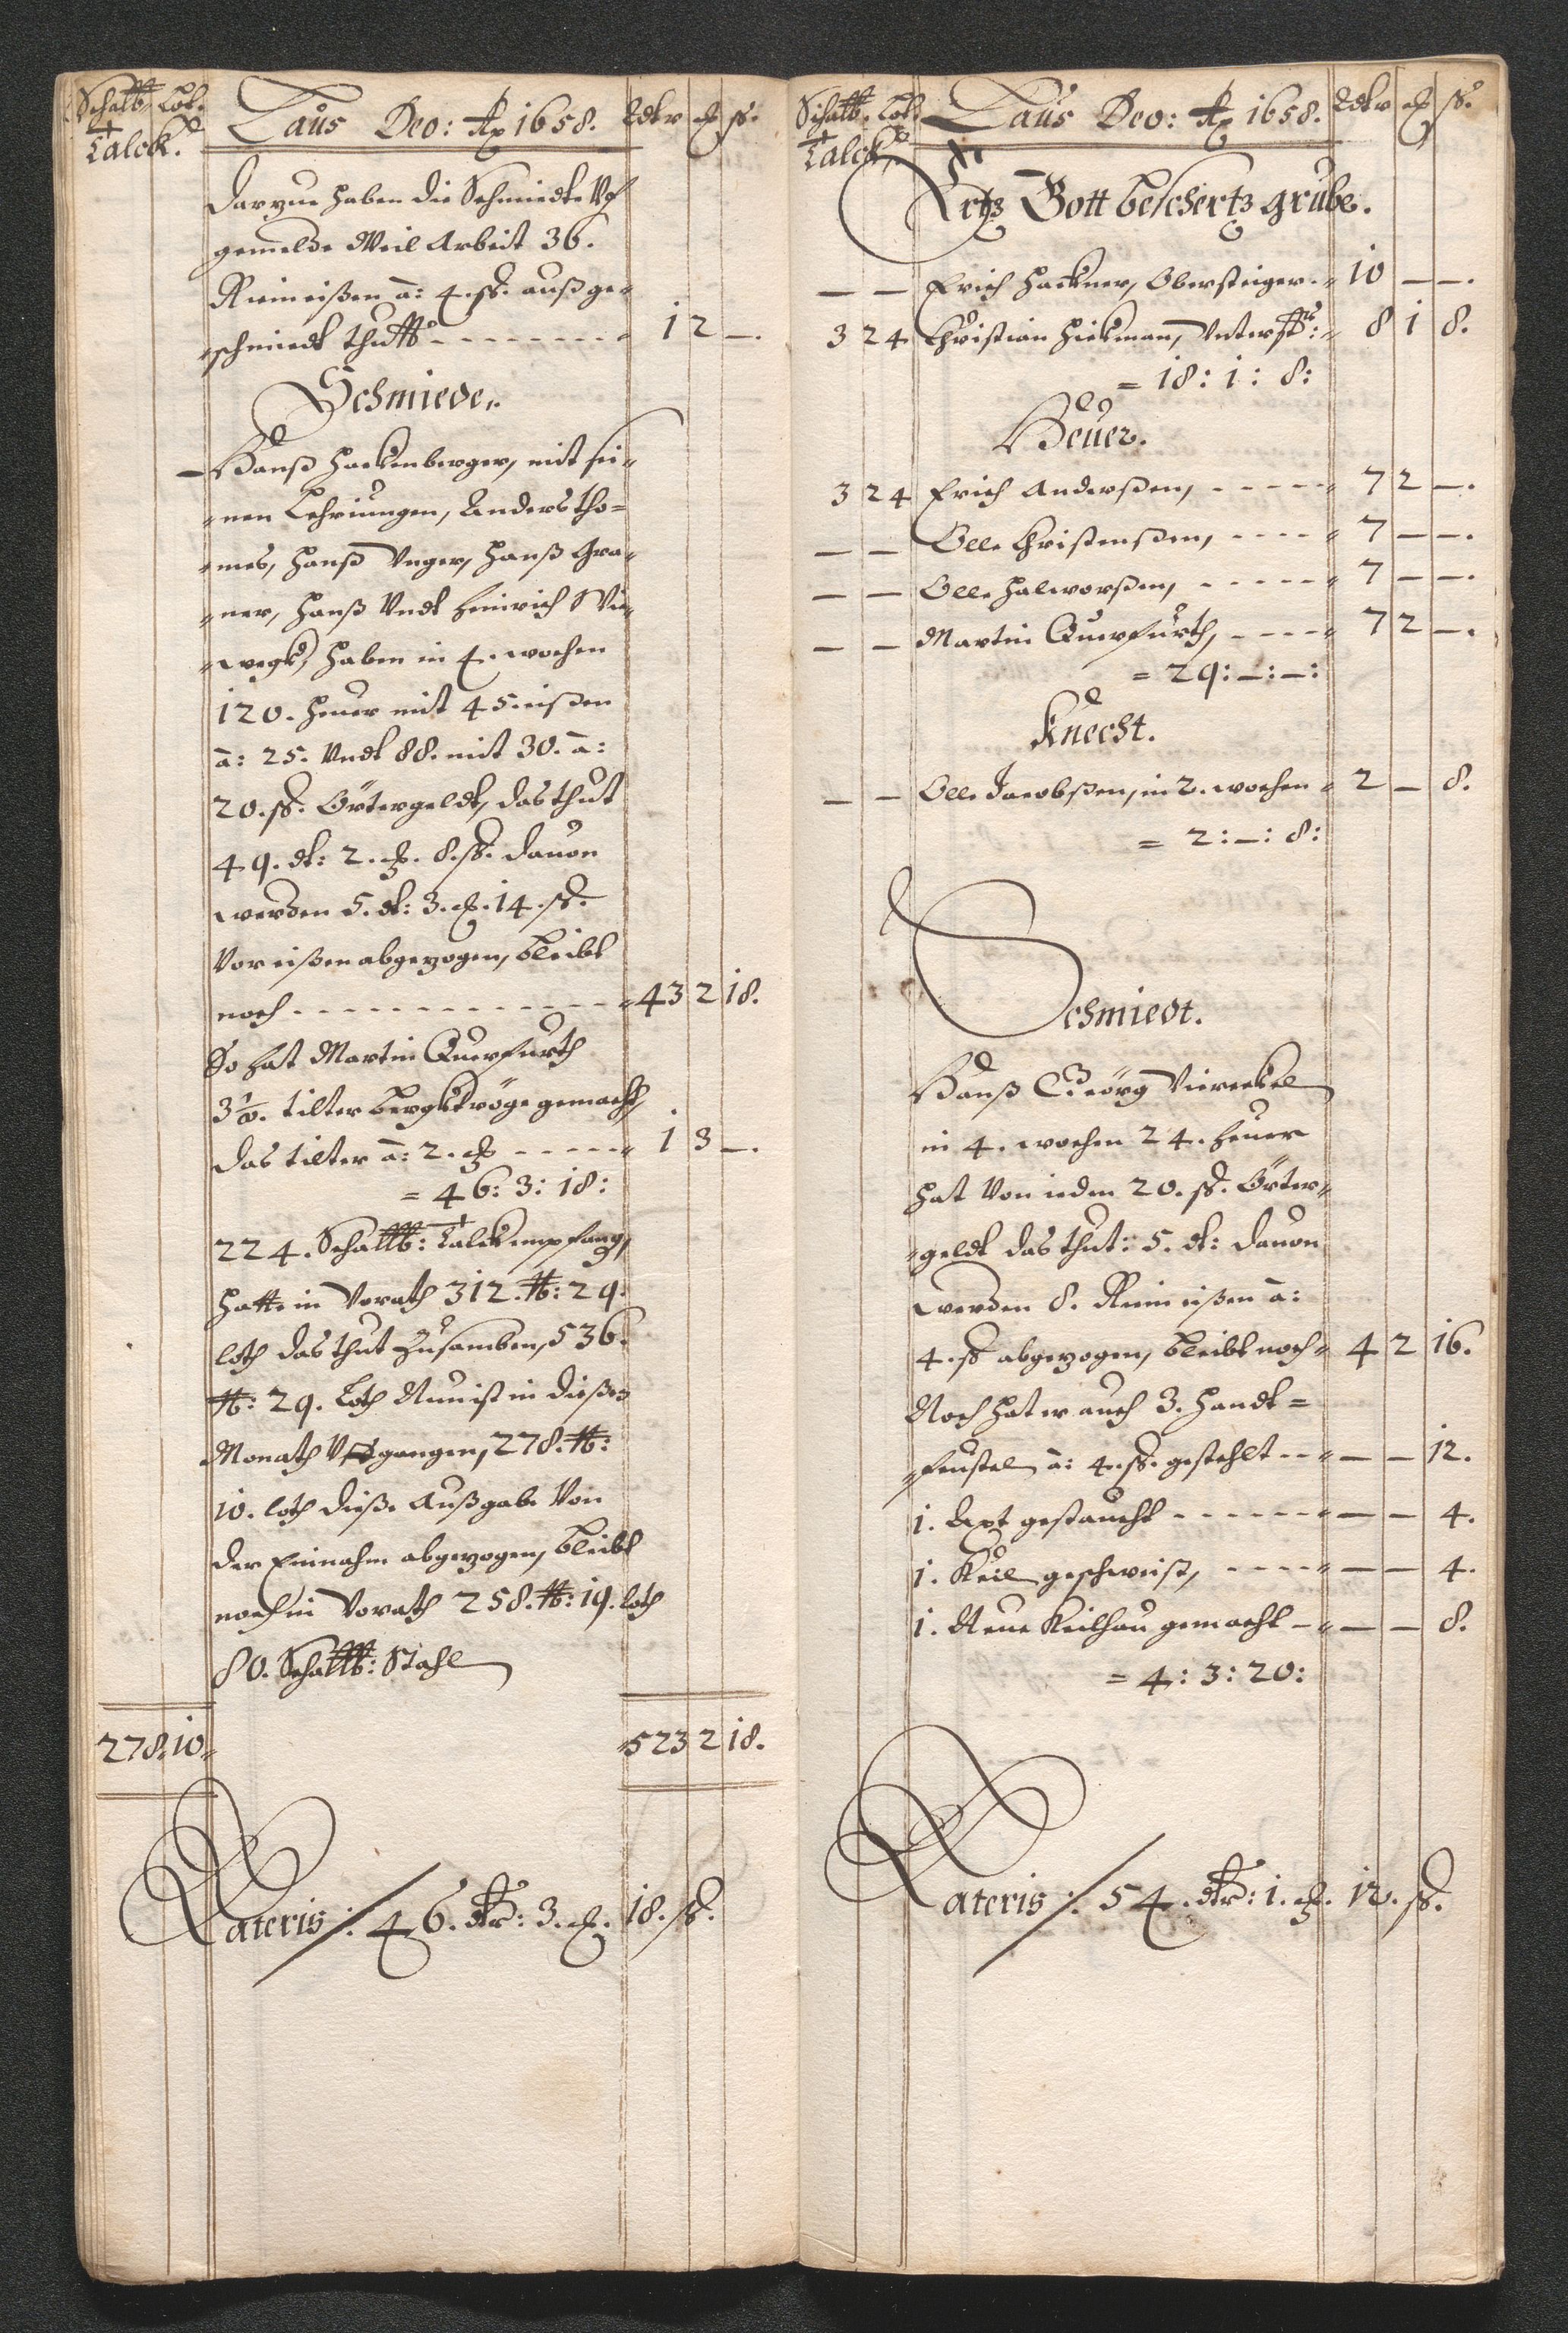 Schalb. Lot.
Talck.
Laus Deo: Ao 1658.
Rdlr ß.
Darzue haben die Schmiedte Vf
gemelde Weil Arbeit 36.
Riemeißen à: 4. ß. außge„
„schmiedt thutt - - - - 1 2 —.
Schmiede.
— Hanß Hackenberger, mit sei„
„nen Lehriungen, Anders Tho=
„mes, Hanß Unger, Hanß Gra„
„ner, Hanß Vndt Heinrich
haben in 4. wochen
120. Heuer mit 45. eißen
à: 25. Vndt 88. mit 30. à:
20. ß. Örtergeldt, das thut
49. dl: 2. 8. ß. dauon
werden 5. dl: 3. 14. ß.
Vor eißen abgezogen, bleibt
noch - - - - 43 2 18.
So hat Martin Querfurth
3½. tilter Bergktröge gemacht,
das tilter à: 2. - - - - 1 3 —.
= 46: 3: 18:
224. Schalb: Talck empfang,
hatte in Vorath 312. lb: 29.
loth das thut Zusamben, 536.
lb: 29. Loth Nun ist in dießen
Monath Vfgangen, 278. lb:
10. loth dieße Außgabe Von
der Einnahm abgezogen, bleibt
noch in Vorath 258. lb: 19. loth
80. Schalb: Stahl
278. 10. 523 2 18.
Lateris /: 46. dlr: 3. 18. ß.
Schalb. Lot.
Talck.
Laus Deo: Ao 1658.
Rdlr ß.
Ertz Gott beschertz grube.
— — Erich Hackner, Obersteiger. 10 — —.
3 24 Christian Hickman, Unterstr: 8 1 8.
= 18: 1: 8:
Heuer.
3 24 Erich Anderßen, - - - - 7 2 —.
— — Olle Christenßen, - - - - 7 — —.
— — Olle Halworßen, - - - - 7 — —.
— — Martin Querfurth, - - - - 7 2 —.
= 29: —: —:
Knecht.
— — Olle Jacobßen, in 2. wochen 2 — 8.
= 2: —: 8:
Schmiedt.
Hanß Georg Viereckel
in 4. wochen 24. Heuer
hat Von ieden 20. ß. Örter„
„geldt das thut: 5. dl: dauon
werden 8. Riem eißen à:
4. ß abgezogen, bleibt noch 4 2 16.
Noch hat er auch 3. Handt=
„feustel à: 4. ß. gestehlt - - — — 12.
1. Axt gestaucht - - - - — — 4.
1. Keil geschweist, - - - - — — 4.
1. Neue Keilhau gemacht - — — 8.
= 4: 3: 20:
Lateris /: 54. dlr: 1. 12. ß.